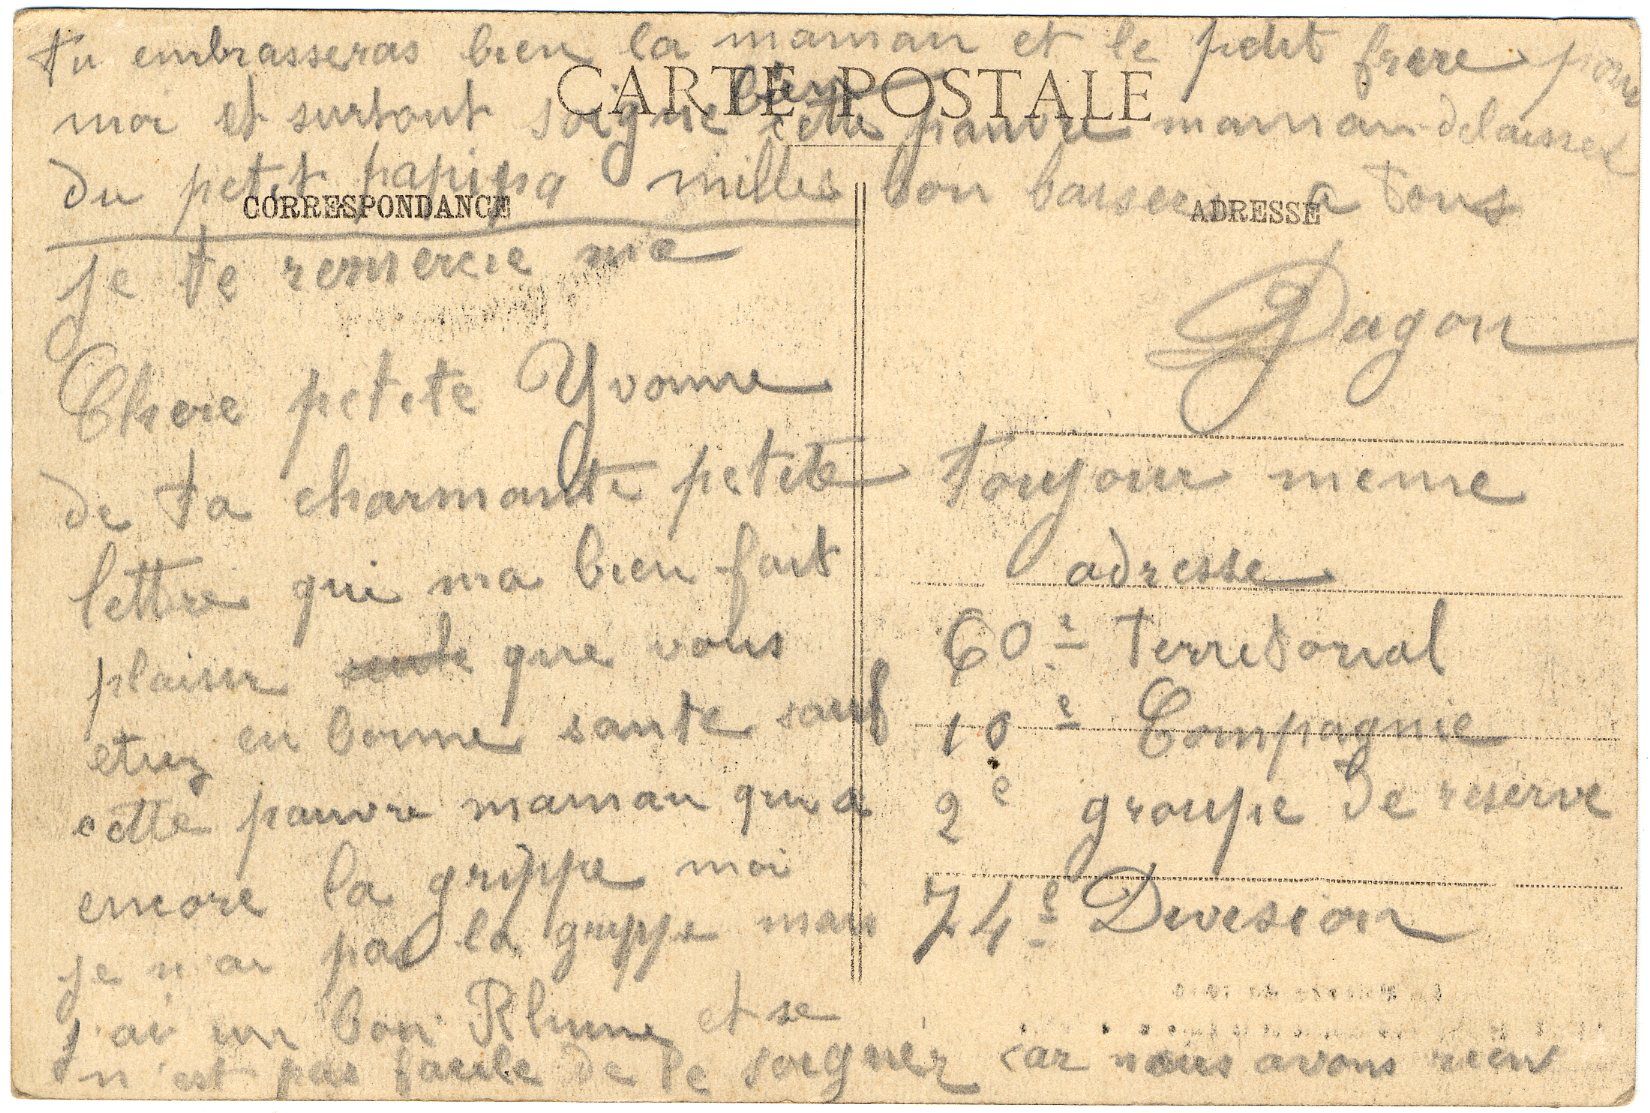 Tu embrasseras bien la maman et le petit frere pour
CARTE POSTALE
bien
moi et surtout soigne cette pauvre maman delaissee
du petit papipa milles bon baiser a tous
CORRESPONDANCE
ADRESSE
je te remercie mie
Chere petite Yvonne
de ta charmante petite
lettre qui ma bien fait
plaisir que vous
etiez en bonne sante sauf
cette pauvre maman qui a
encore la grippe moi
je n'ai pas la grippe mais
j'ai un bon Rhume et se
n'est pas facile de se soigner car nous avons rien
Dagon
toujour meme
adresse
60e Terretorial
10e Compagnie
2e groupe de reserve
74e Devesion